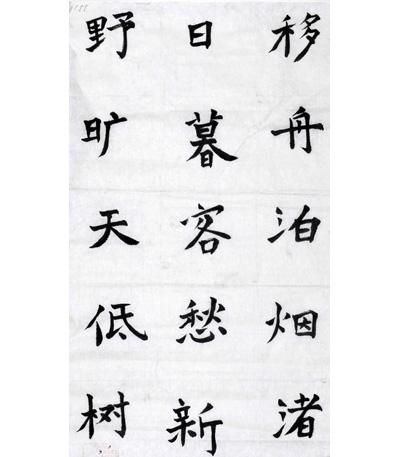 移舟泊烟渚
日暮客愁新
野旷天低树